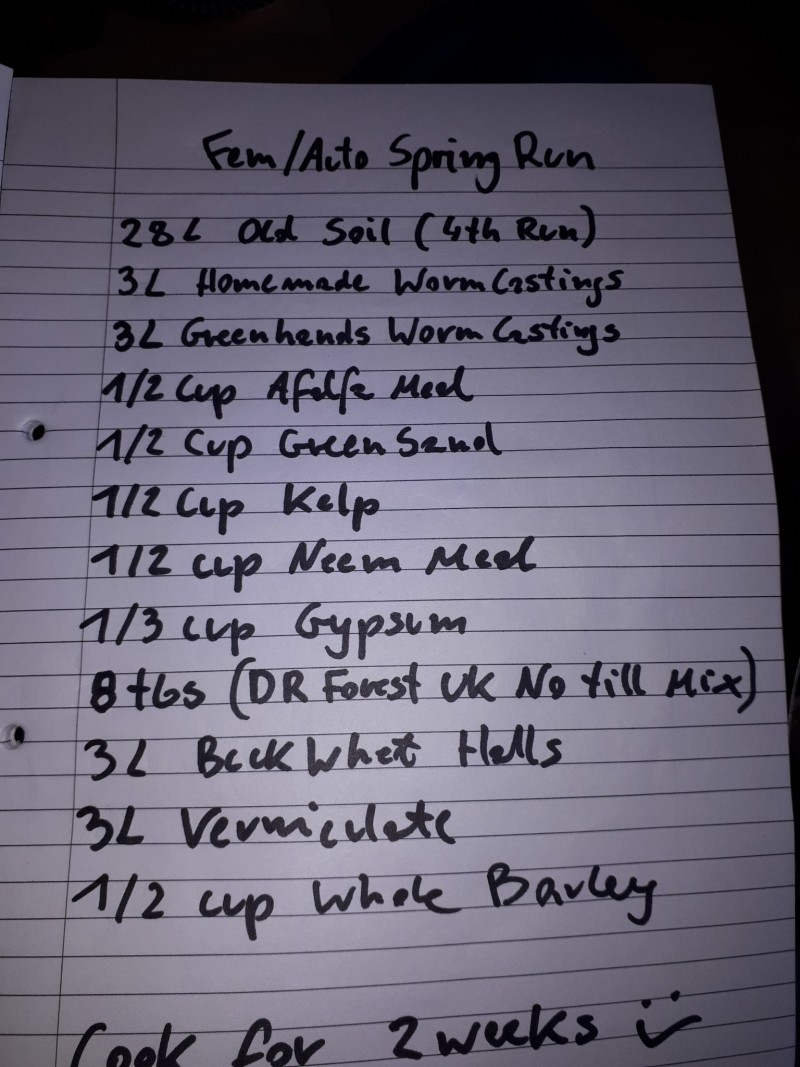 Fem/Auto Spring Run
28L Old Soil (4th Run)
3L Homemade Worm Castings
3L Greenhands Worm Castings
1/2 Cup Afalfa Meal
1/2 Cup Green Sand
1/2 Cup Kelp
1/2 cup Neem Meal
1/3 cup Gypsum
8 tbs (DR Forest UK No till Mix)
3L Buck Wheat Hulls
3L Vermiculate
1/2 cup Whole Barley
Cook for 2 weeks